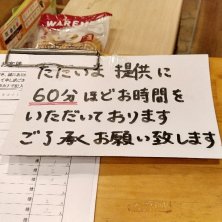 WARE
ただいま 提供に
60分ほどお時間を
いただいております
ご了承くお願い致します